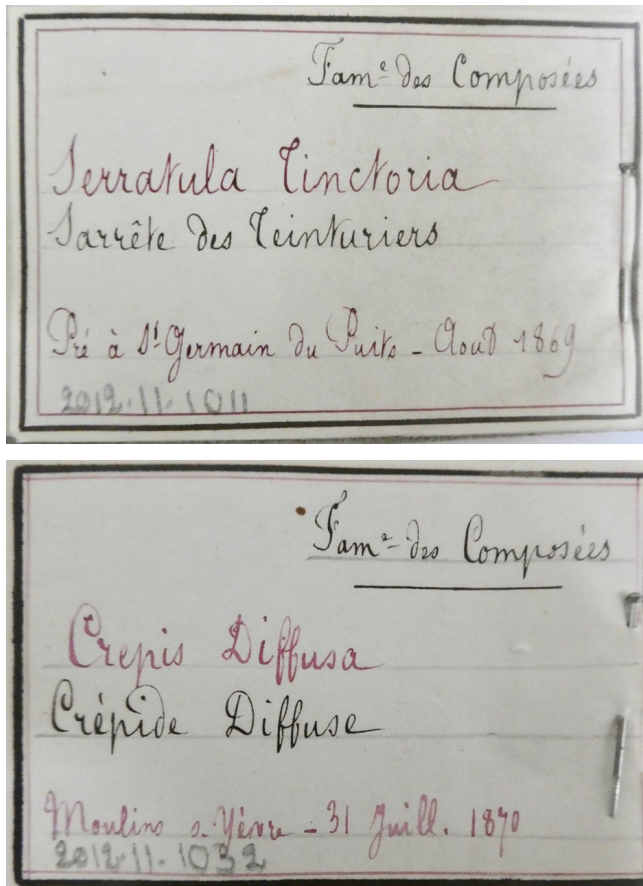 Fam.e des Composées
Serratula Tinctoria
Sarrête des Teinturiers
Pré à St Germain du Puits - Août 1869
2012.11.1011
Fam.e des Composées
Crepis Diffusa
Crépide Diffuse
Moulins s. Yèvre - 31 Juill. 1870
2012.11.1032